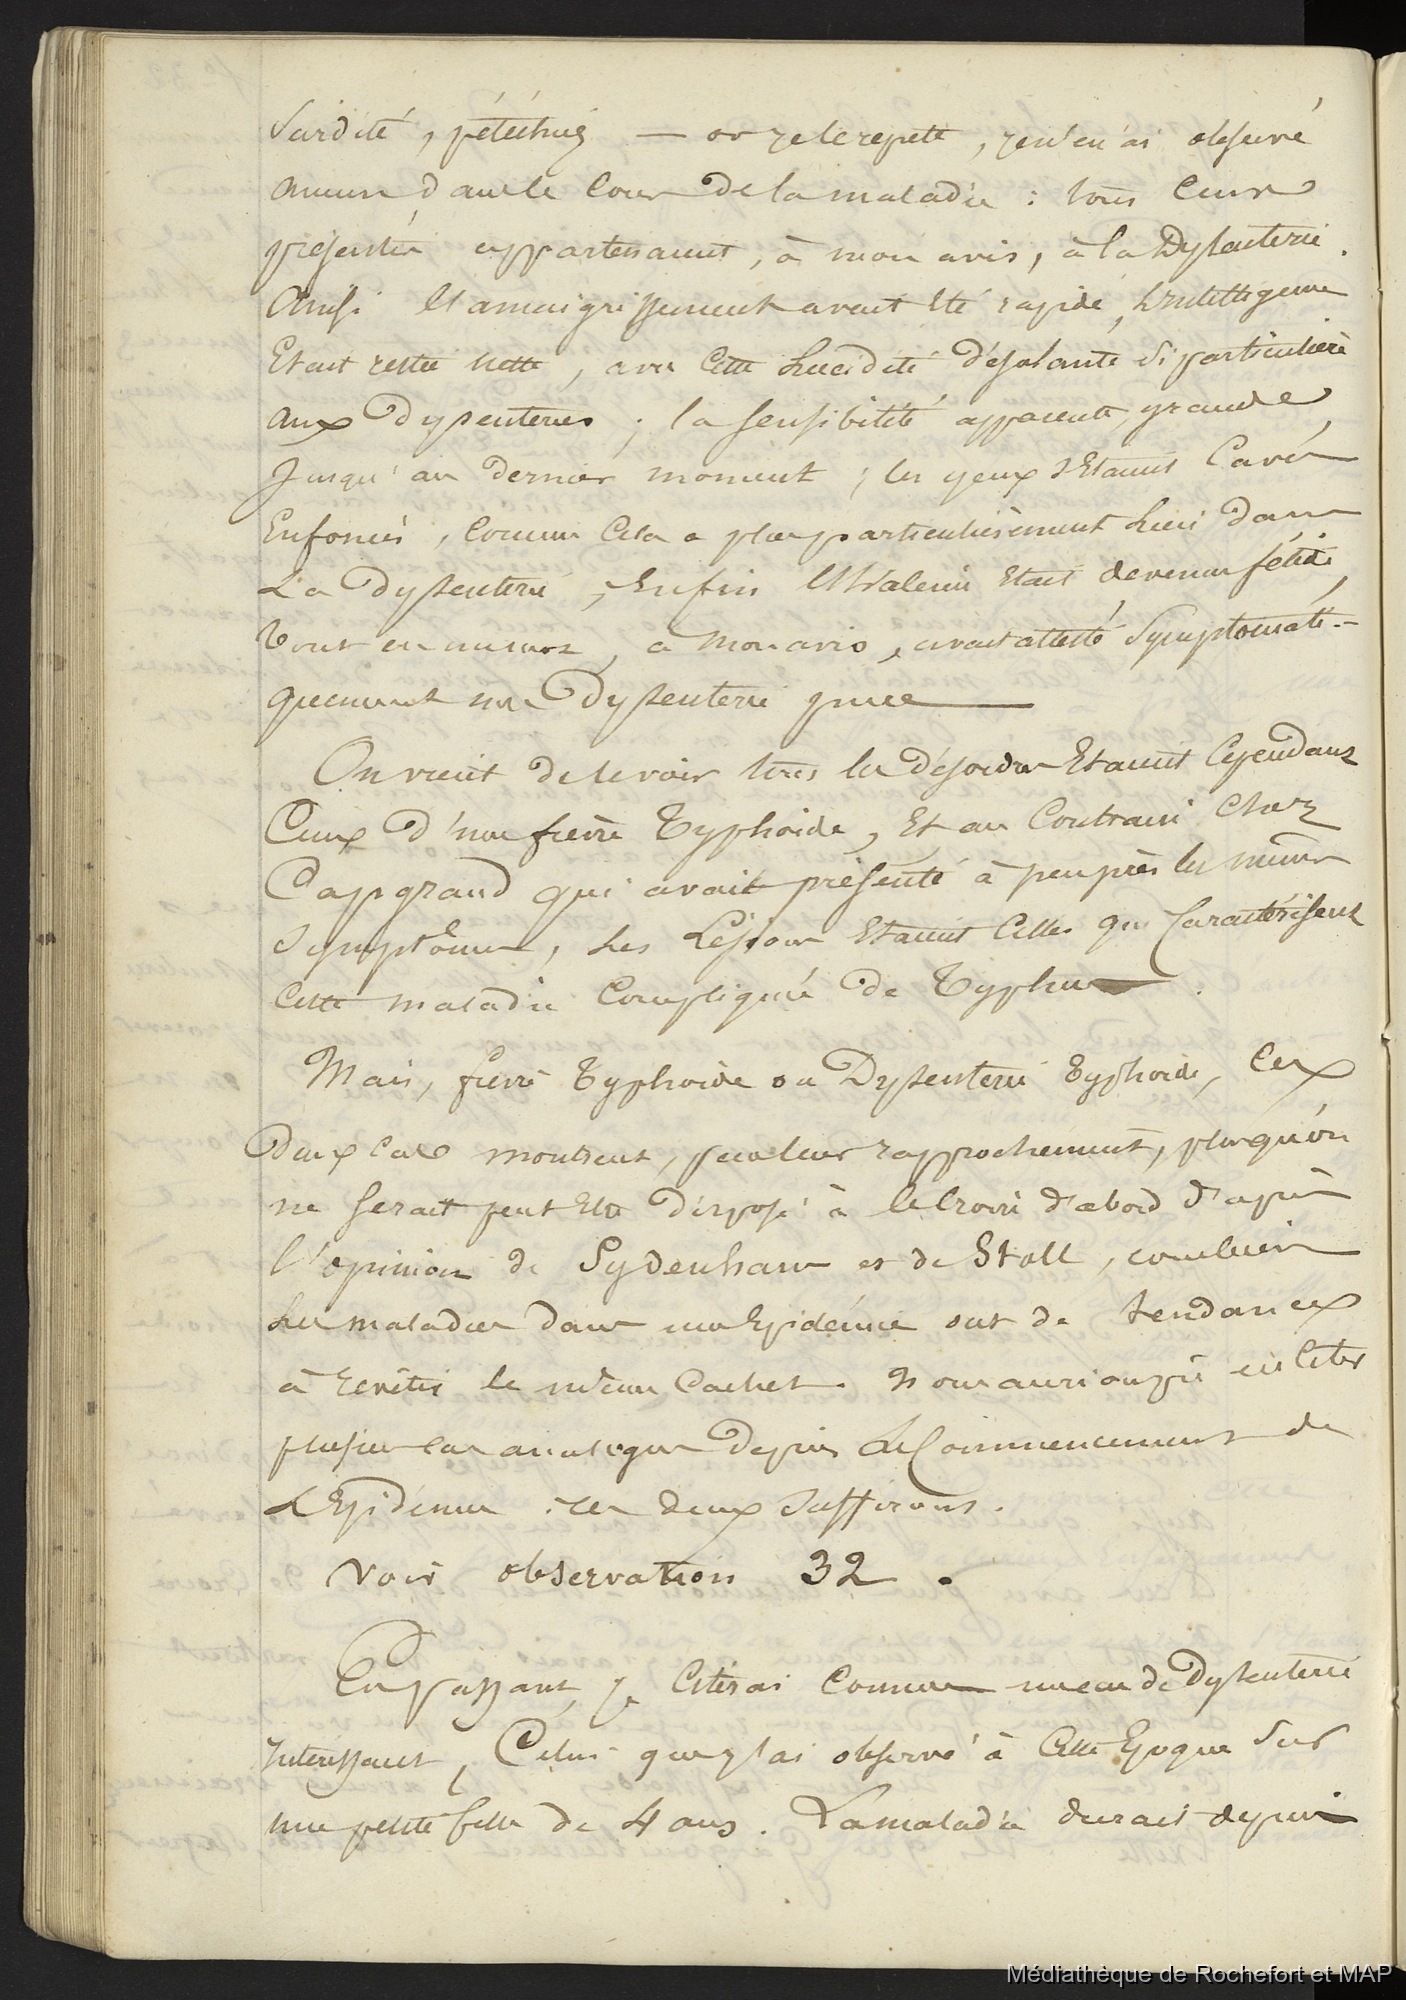 Surdité, pétéchies — or je le repete, je n'en ai observé
aucun dans le cours de la maladie : tous ceux
présentés appartenaient, à mon avis, à la Dyssenterie.
Ainsi l'amaigrissement avait été rapide, l'intelligence
Etait restée nette, avec cette lucidité désolante si particulière
aux Dyssenteries ; la sensibilité apparente, grande,
Jusqu'au dernier moment ; les yeux s'Etaient Cavés
Enfoncés, comme Cela a plus particulièrement lieu dans
La Dyssenterie ; Enfin l'haleine Etait devenue fétide,
Tout en un mot, à mon avis, avait attesté Symptomati-
quement une Dyssenterie grave
On vient de le voir tous les désordres Etaient Cependant
Ceux d'une fièvre Typhoide, Et au Contraire Chez
Capgrand qui avait présenté à peu près les mêmes
Symptômes, les Lésions Etaient Celles qui Caractérisent
Cette maladie Compliquée de Typhus.
Mais, fièvre Typhoide ou Dyssenterie Typhoide, Ces
Deux Cas montrent, par leur rapprochement, plus qu'on
ne serait peut Etre disposé à le Croire d'abord d'après
l'opinion de Sydenham et de Stoll, combien
les maladies dans une Epidémie ont de tendances
à revêtir le même Cachet. Nous aurions pu en Citer
plusieurs cas analogues Depuis le Commencement de
L'Epidémie : ces deux Suffiront.
Voir observation 32.
En passant, je Citerai Comme un cas de Dyssenterie
Interessant, Celui que j'ai observé à Cette Epoque Sur
une petite fille de 4 ans. La maladie durait depuis
Médiathèque de Rochefort et MAP